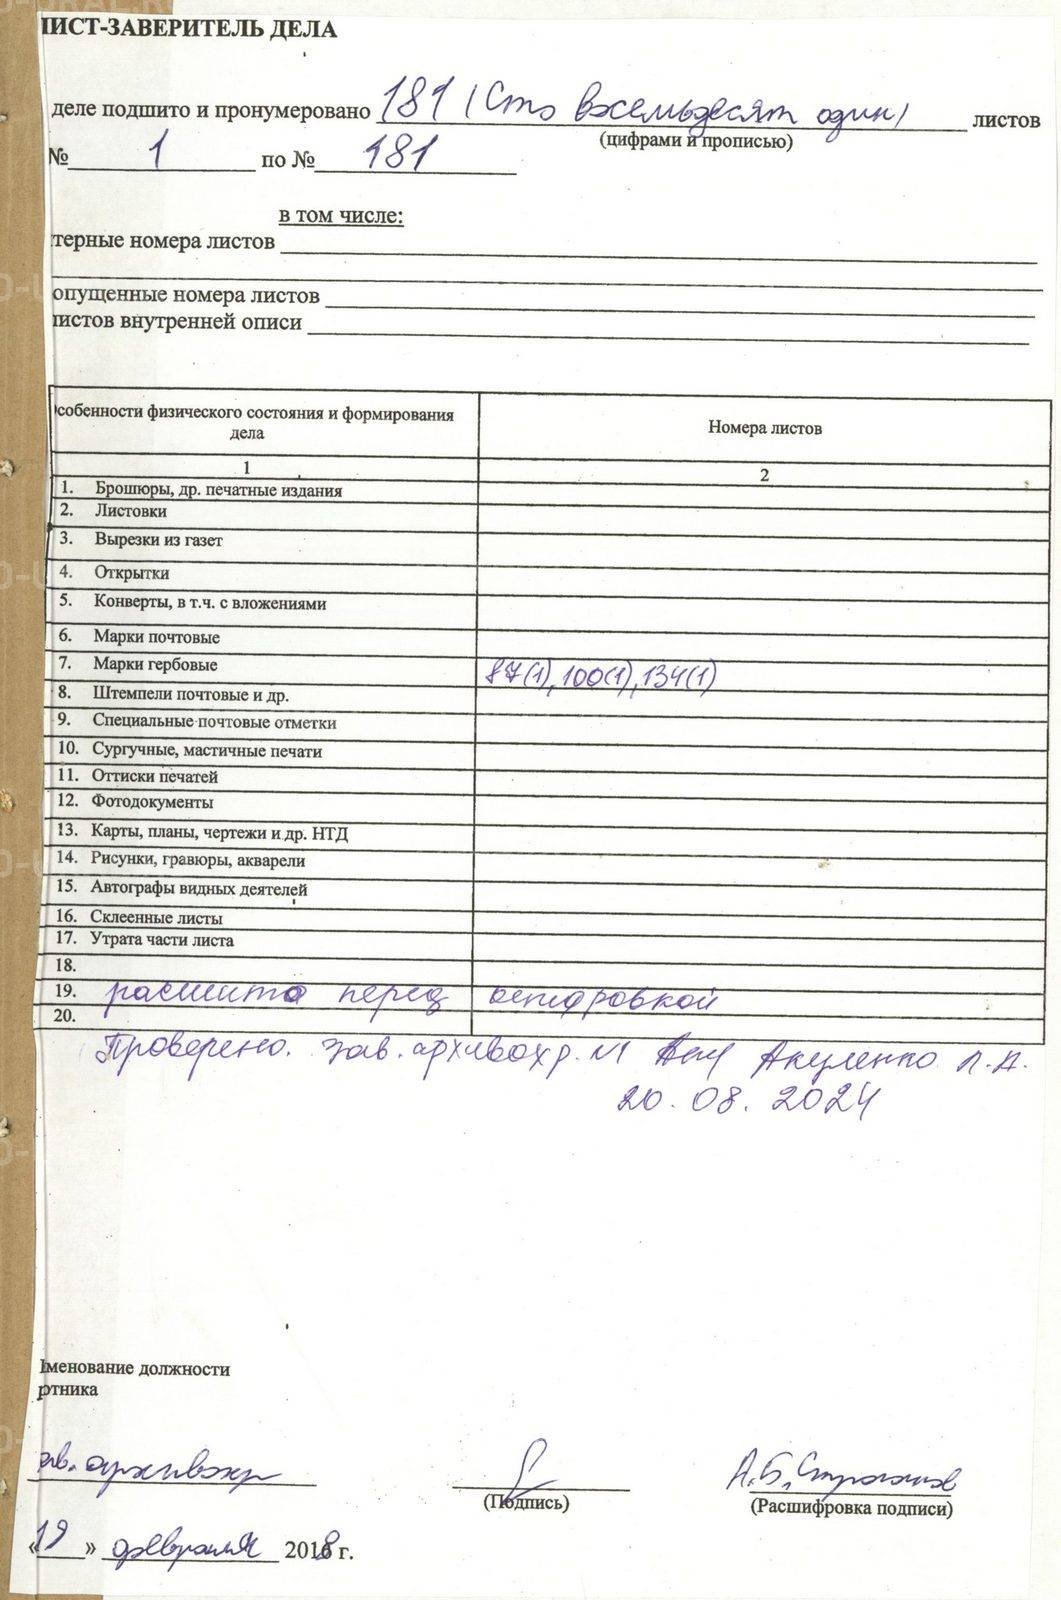 ЛИСТ-ЗАВЕРИТЕЛЬ ДЕЛА
деле подшито и пронумеровано 181 (Сто восемьдесят один) листов
(цифрами и прописью)
№ 1 по № 181
в том числе:
терные номера листов
опущенные номера листов
листов внутренней описи
собенности физического состояния и формирования дела
Номера листов
1
2
1. Брошюры, др. печатные издания
2. Листовки
3. Вырезки из газет
4. Открытки
5. Конверты, в т.ч. с вложениями
6. Марки почтовые
7. Марки гербовые 87(1), 100(1), 134(1)
8. Штемпели почтовые и др.
9. Специальные почтовые отметки
10. Сургучные, мастичные печати
11. Оттиски печатей
12. Фотодокументы
13. Карты, планы, чертежи и др. НТД
14. Рисунки, гравюры, акварели
15. Автографы видных деятелей
16. Склеенные листы
17. Утрата части листа
18.
19. расшито перед оцифровкой
20.
Проверено. зав. архивохр. №1 Акуленко Л.А.
20.08.2024
именование должности
ртника
ав. архивохр
(Подпись)
А.Б. Строганов
(Расшифровка подписи)
«19» февраля 2018 г.